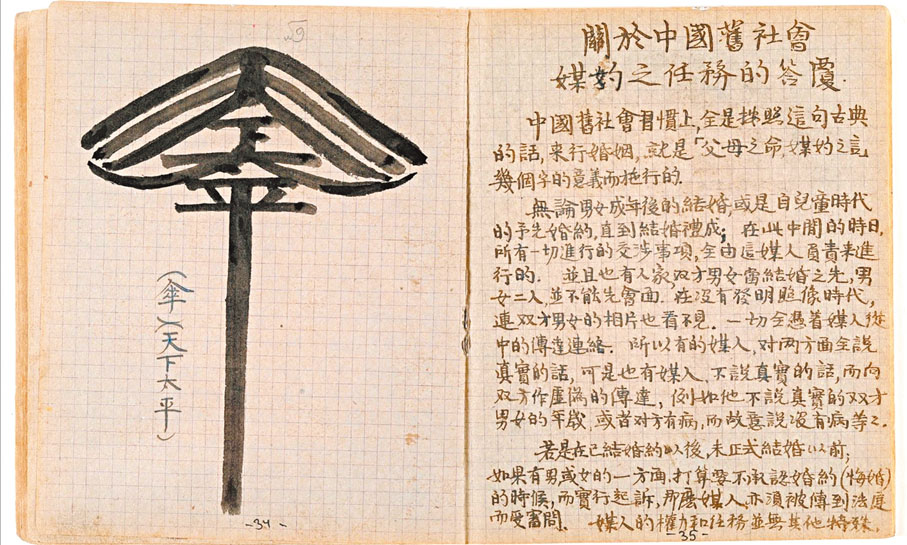 (傘)(天下太平)
-34-
關於中國舊社會
媒妁之任務的答覆.
中國舊社會習慣上,全是按照這句古典
的話,来行婚姻,就是「父母之命,媒妁之言
幾個字的意義而施行的.
無論男女成年後的結婚,或是自兒童時代
的予先婚約,直到結婚禮成; 在此中間的時日,
所有一切進行的交涉事項,全由這媒人負責来進
行的. 並且也有人家双方男女當結婚之先,男
女二人,並不能先會面. 在没有發明照像時代,
連双方男女的相片也看不見. 一切全憑着媒人從
中的傳達連絡. 所以有的媒人,对两方面全說
真實的話,可是也有媒人,不說真實的話,而向
双方作虛偽的傳達, 例如他不說真實的双方
男女的年歲,或者对方有病,而故意說没有病等々.
若是在已結婚約以後,未正式結婚以前;
如果有男或女的一方面,打算要不承認婚約(悔婚)
的時候,而實行起訴,那麽媒人亦須被傳到法庭
而受審問. 媒人的權力和任務並無其他特殊.
-35-